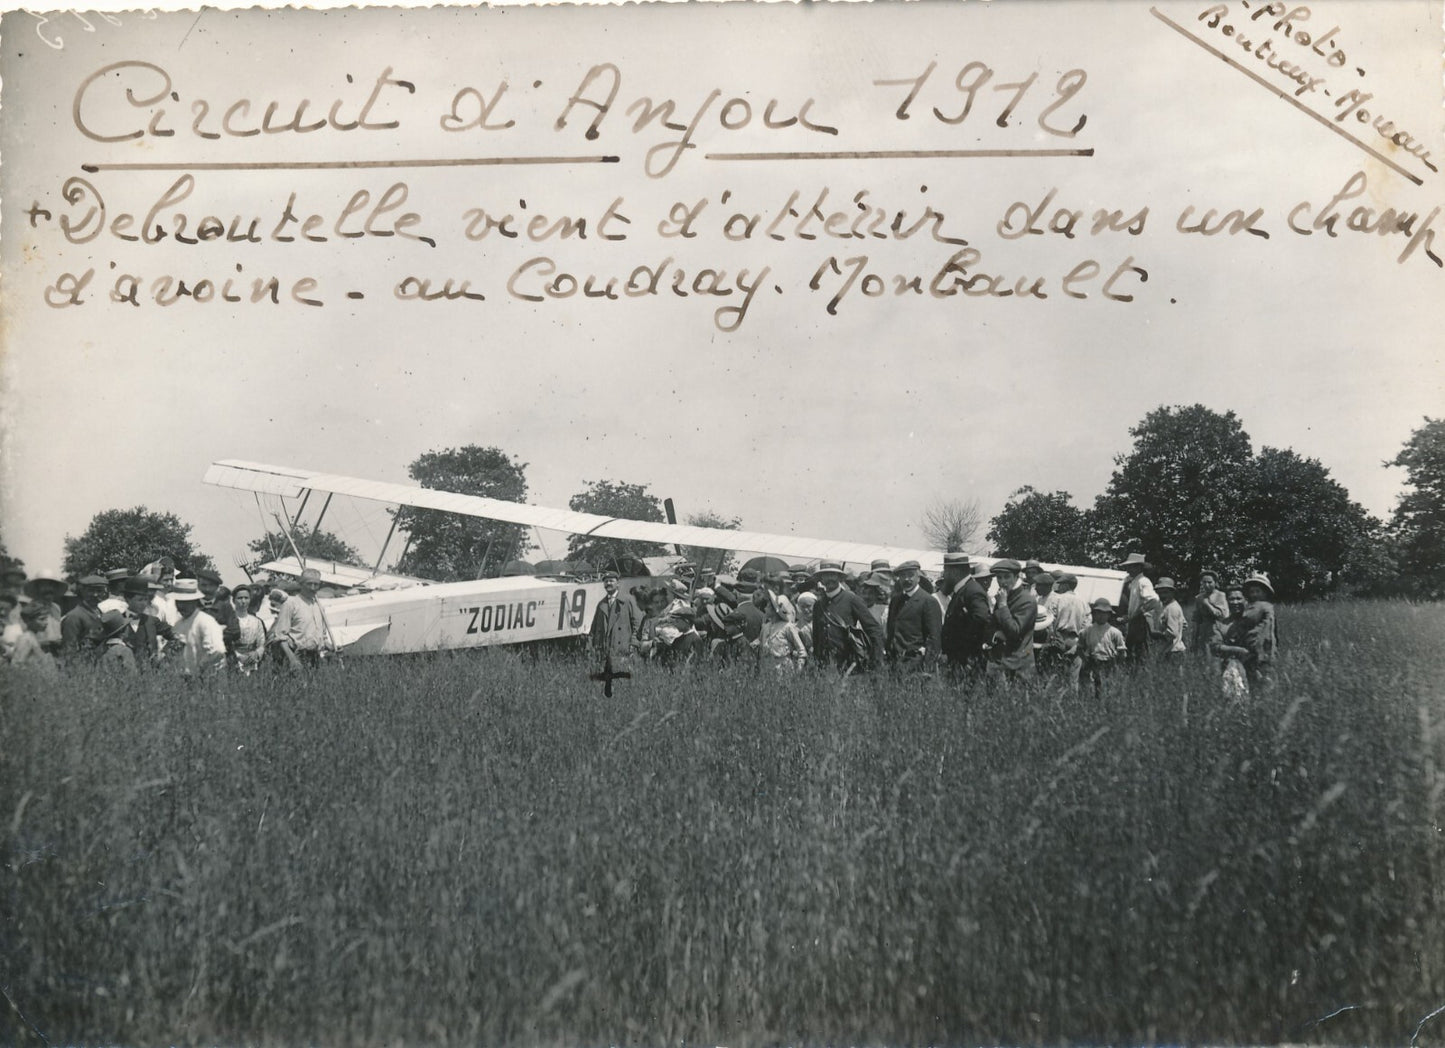 Circuit d'Anjou 1912
- Photo -
Boutreux - Moreau
+ Debroutelle vient d'attérrir dans un champ
d'avoine - au Coudray. Montbault.
"ZODIAC" 19